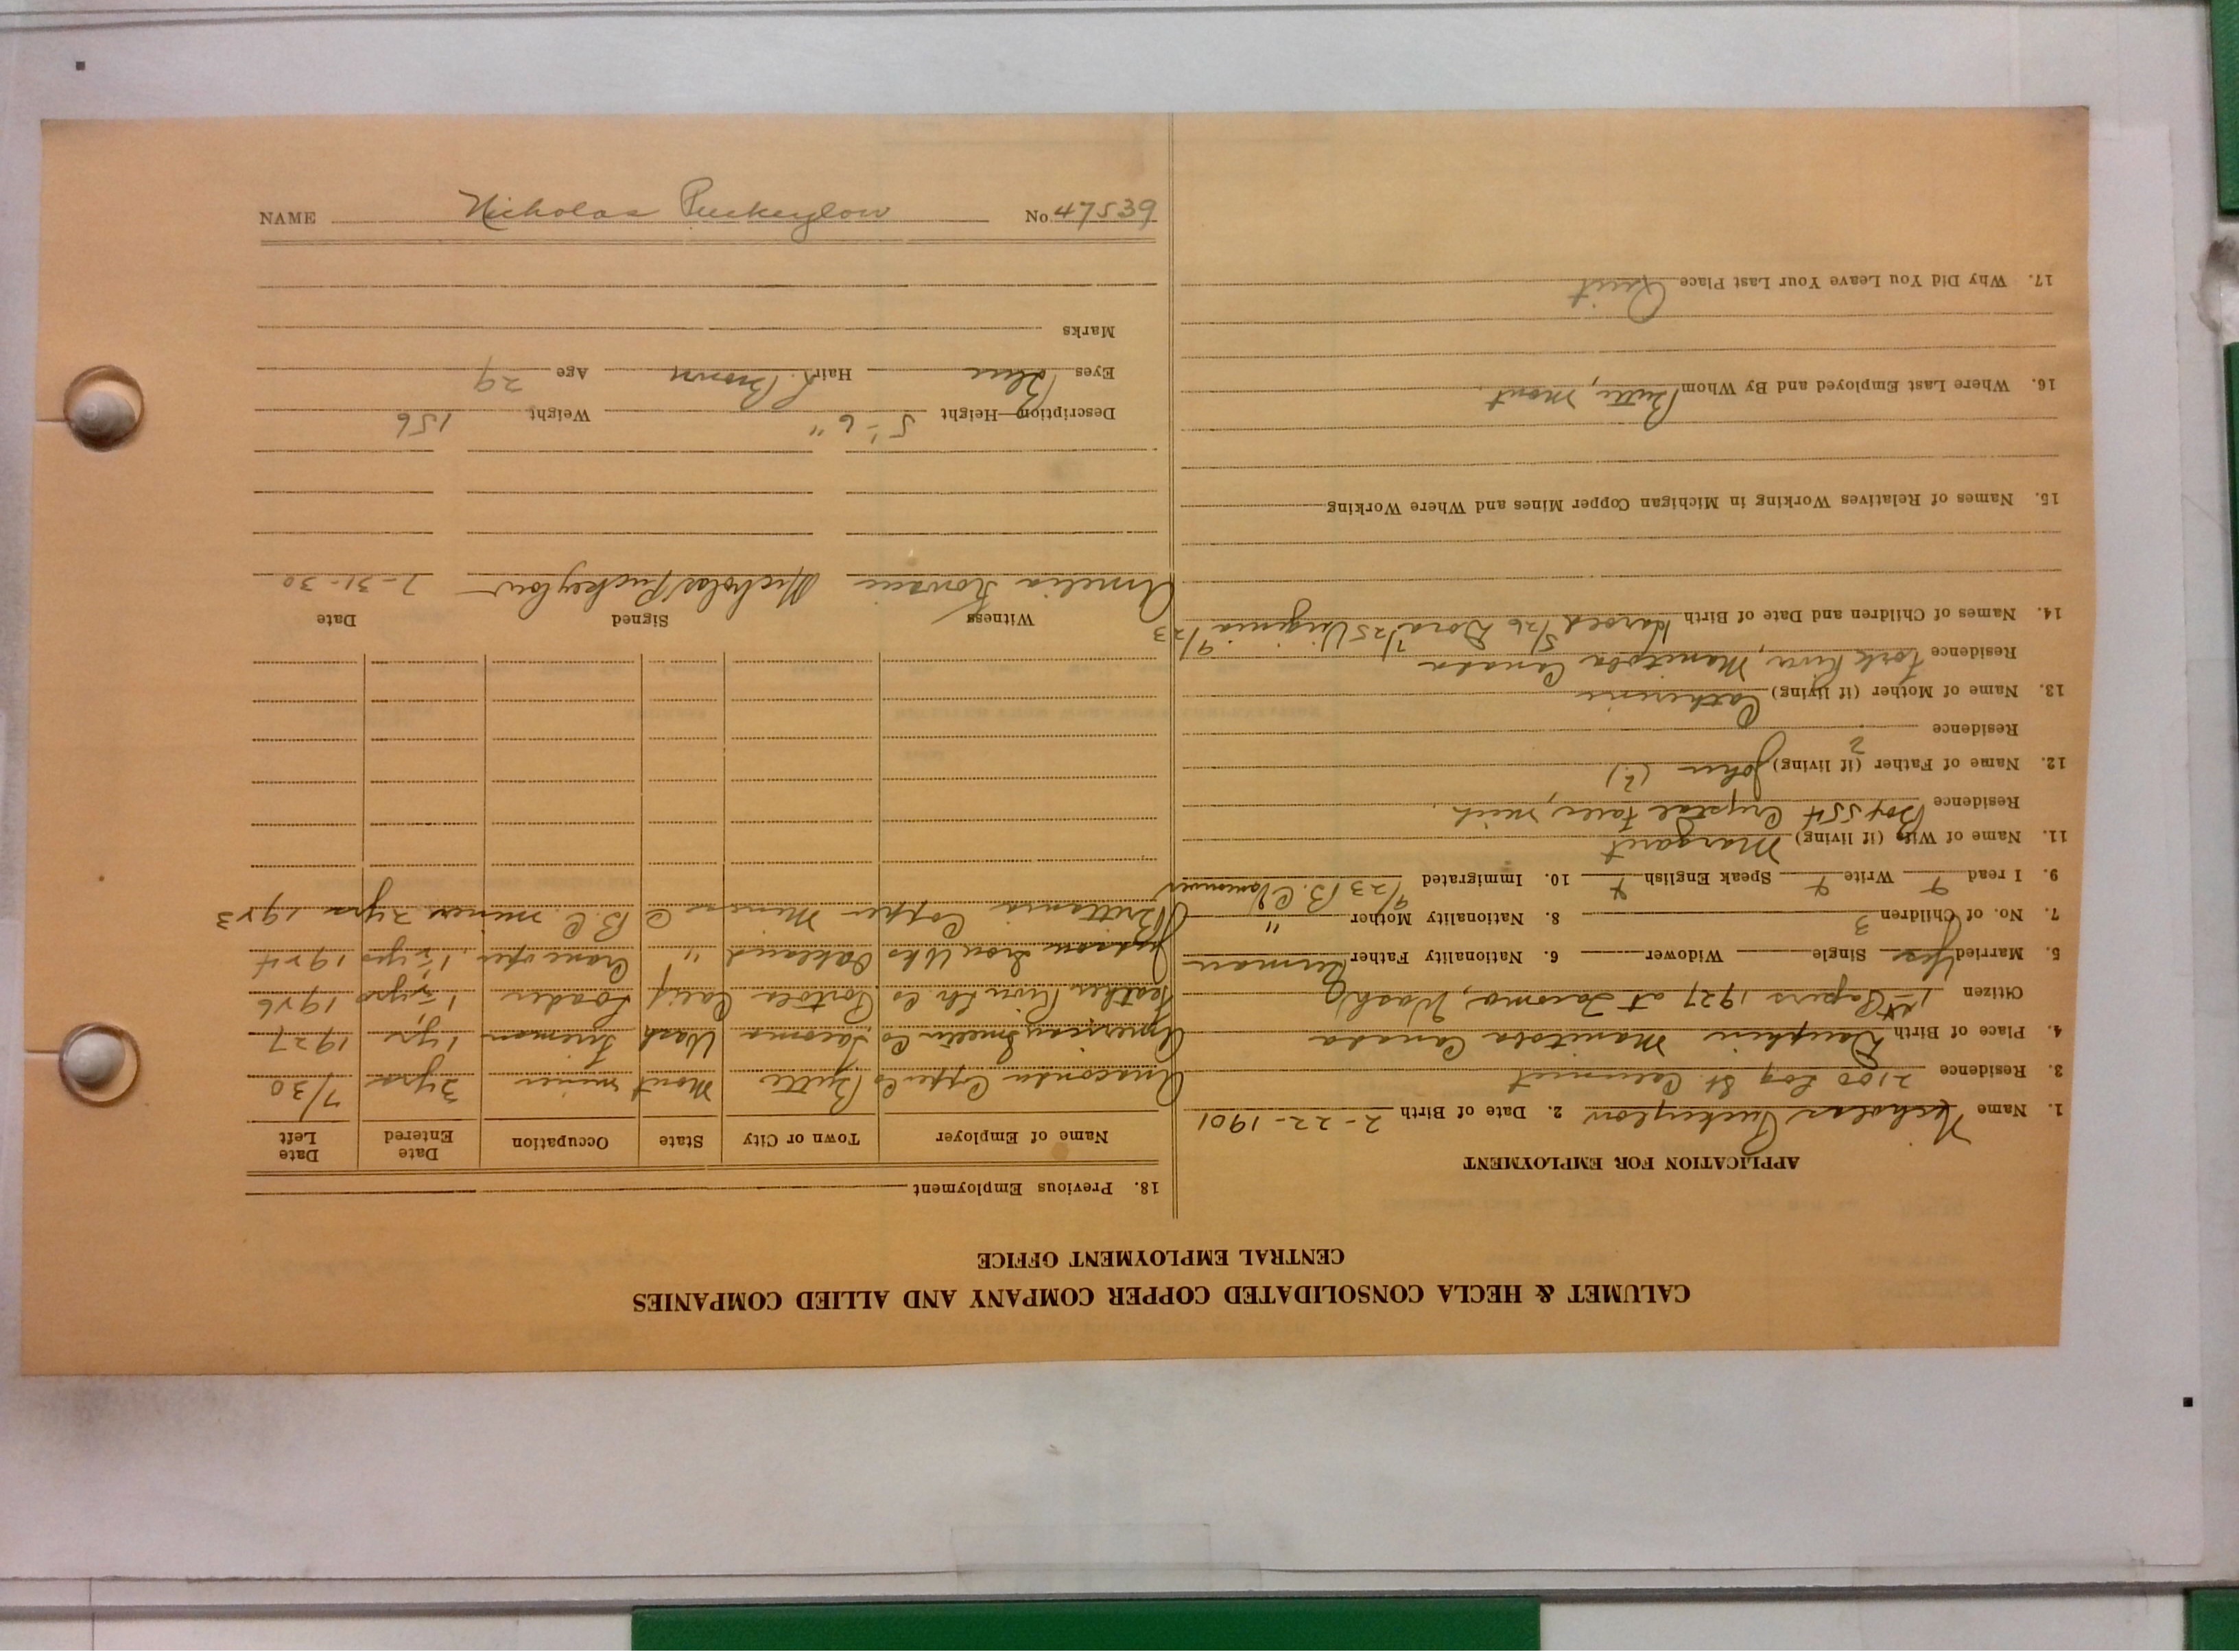 CALUMET & HECLA CONSOLIDATED COPPER COMPANY AND ALLIED COMPANIES
CENTRAL EMPLOYMENT OFFICE
APPLICATION FOR EMPLOYMENT
1. Name Nicholas Puckeylow 2. Date of Birth 2-22-1901
3. Residence 2100 Log St. Calumet
4. Place of Birth Dauphin Manitoba Canada
Citizen 1st Papers 1927 at Tacoma, Wash
5. Married Yes Single Widower 6. Nationality Father German
7. No. of Children 3 8. Nationality Mother "
9. I read 4 Write 4 Speak English 4 10. Immigrated 9/23 B.C. Vancouver
11. Name of Wife (if living) Margaret
Residence Box 554 Crystal Falls, Mich.
12. Name of Father (if living) John (?)
Residence ?
13. Name of Mother (if living) Catherine
Residence Fork River, Manitoba Canada
14. Names of Children and Date of Birth Harold 5/26 Dora 7/25 Virginia 9/23
15. Names of Relatives Working in Michigan Copper Mines and Where Working
16. Where Last Employed and By Whom Butte, Mont.
17. Why Did You Leave Your Last Place Quit
18. Previous Employment
Name of Employer Town or City State Occupation Date Entered Date Left
Anaconda Copper Co Butte Mont miner 3yrs 7/30
American Smeltin Co Tacoma Wash Fireman 1yr 1927
Feather River Lbr. Co Portola Calif Loader 1½yrs 1926
Judson Iron Wks Oakland " Crane oper. 1½yrs 1924
Brittania Copper Mine B.C. miner 2yrs 1923
Witness Signed Date
Amelia Nicholas Puckeylow 7-31-30
Description—Height 5'-6" Weight 156
Eyes Blue Hair L. Brown Age 29
Marks
NAME Nicholas Puckeylow No 47539